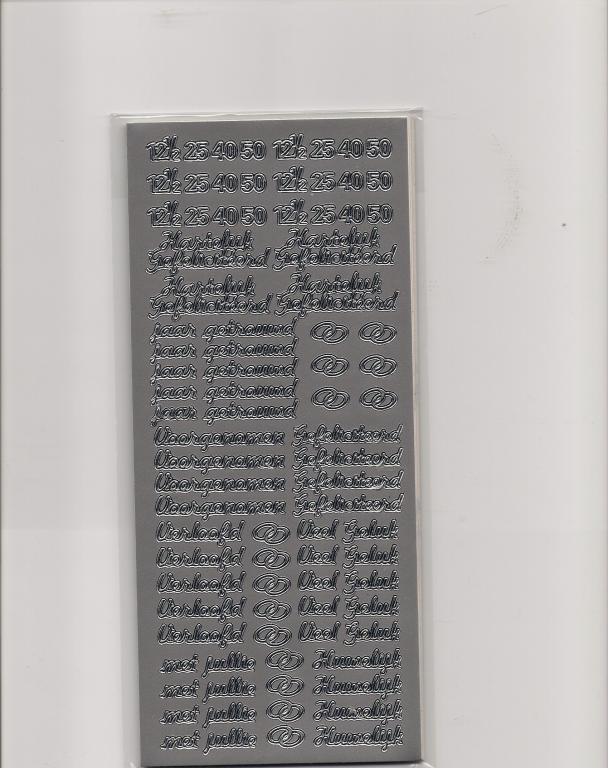 12½ 25 40 50 12½ 25 40 50
12½ 25 40 50 12½ 25 40 50
12½ 25 40 50 12½ 25 40 50
Hartelijk Hartelijk
Gefeliciteerd Gefeliciteerd
Hartelijk Hartelijk
Gefeliciteerd Gefeliciteerd
jaar getrouwd
jaar getrouwd
jaar getrouwd
jaar getrouwd
jaar getrouwd
Voorgenomen Gefeliciteerd
Voorgenomen Gefeliciteerd
Voorgenomen Gefeliciteerd
Voorgenomen Gefeliciteerd
Verloofd Veel Geluk
Verloofd Veel Geluk
Verloofd Veel Geluk
Verloofd Veel Geluk
Verloofd Veel Geluk
met jullie Huwelijk
met jullie Huwelijk
met jullie Huwelijk
met jullie Huwelijk